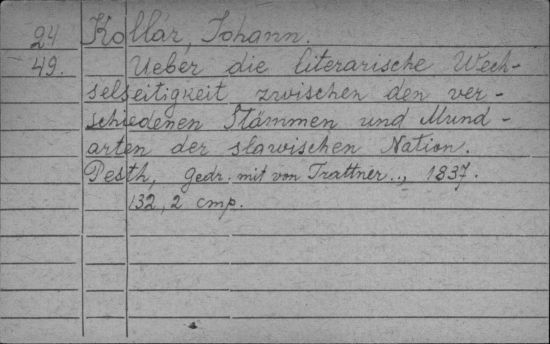 24 Kollár, Johann.
49. Ueber die literarische Wech-
selseitigkeit zwischen den ver-
schiedenen Stämmen und Mund-
arten der slawischen Nation.
Pesth, gedr. mit von Trattner.., 1837.
132, 2 стр.